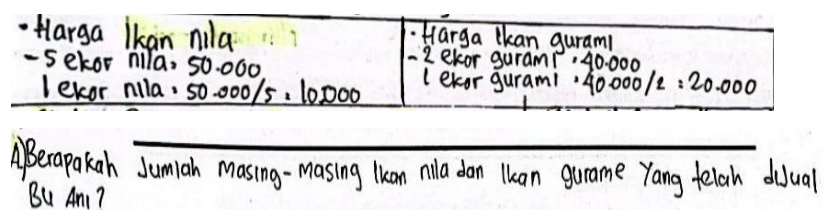 • Harga Ikan nila
- 5 ekor nila = 50.000
1 ekor nila = 50.000/5 = 10.000
• Harga Ikan gurami
- 2 ekor gurami = 40.000
1 ekor gurami = 40.000/2 = 20.000
A) Berapakah Jumlah masing-masing Ikan nila dan Ikan gurame Yang telah dijual
Bu Ani?